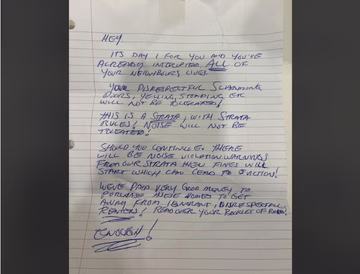 HEY
ITS DAY 1 FOR YOU AND YOU'VE
ALREADY INTERUPTED ALL OF
YOUR NEIGHBOURS LIVES.
YOUR DISRESPECTFUL SLAMMING
DOORS, YELLING, STOMPING ETC
WILL NOT BE TOLERATED!
THIS IS A STRATA, WITH STRATA
RULES! NOISE WILL NOT BE
TOLERATED!
SHOULD YOU CONTINUE THERE
WILL BE NOISE VIOLATION WARNINGS
FROM OUR STRATA THEN FINES WILL
START WHICH CAN LEAD TO EVICTION!
WE'VE PAID VERY GOOD MONEY TO
PURCHASE THESE HOMES TO GET
AWAY FROM IGNORANT, DISRESPECTFUL
! READ OVER YOUR BOOKLET OF RULES!
ENOUGH!